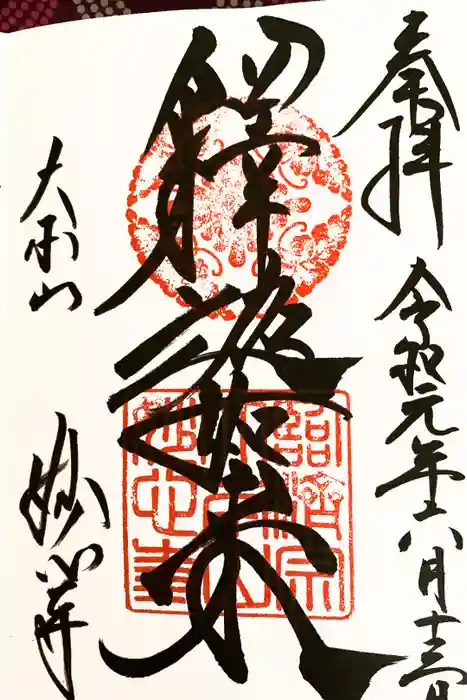 奉拝
令和元年八月十三日
釋迦如来
大本山
妙心寺